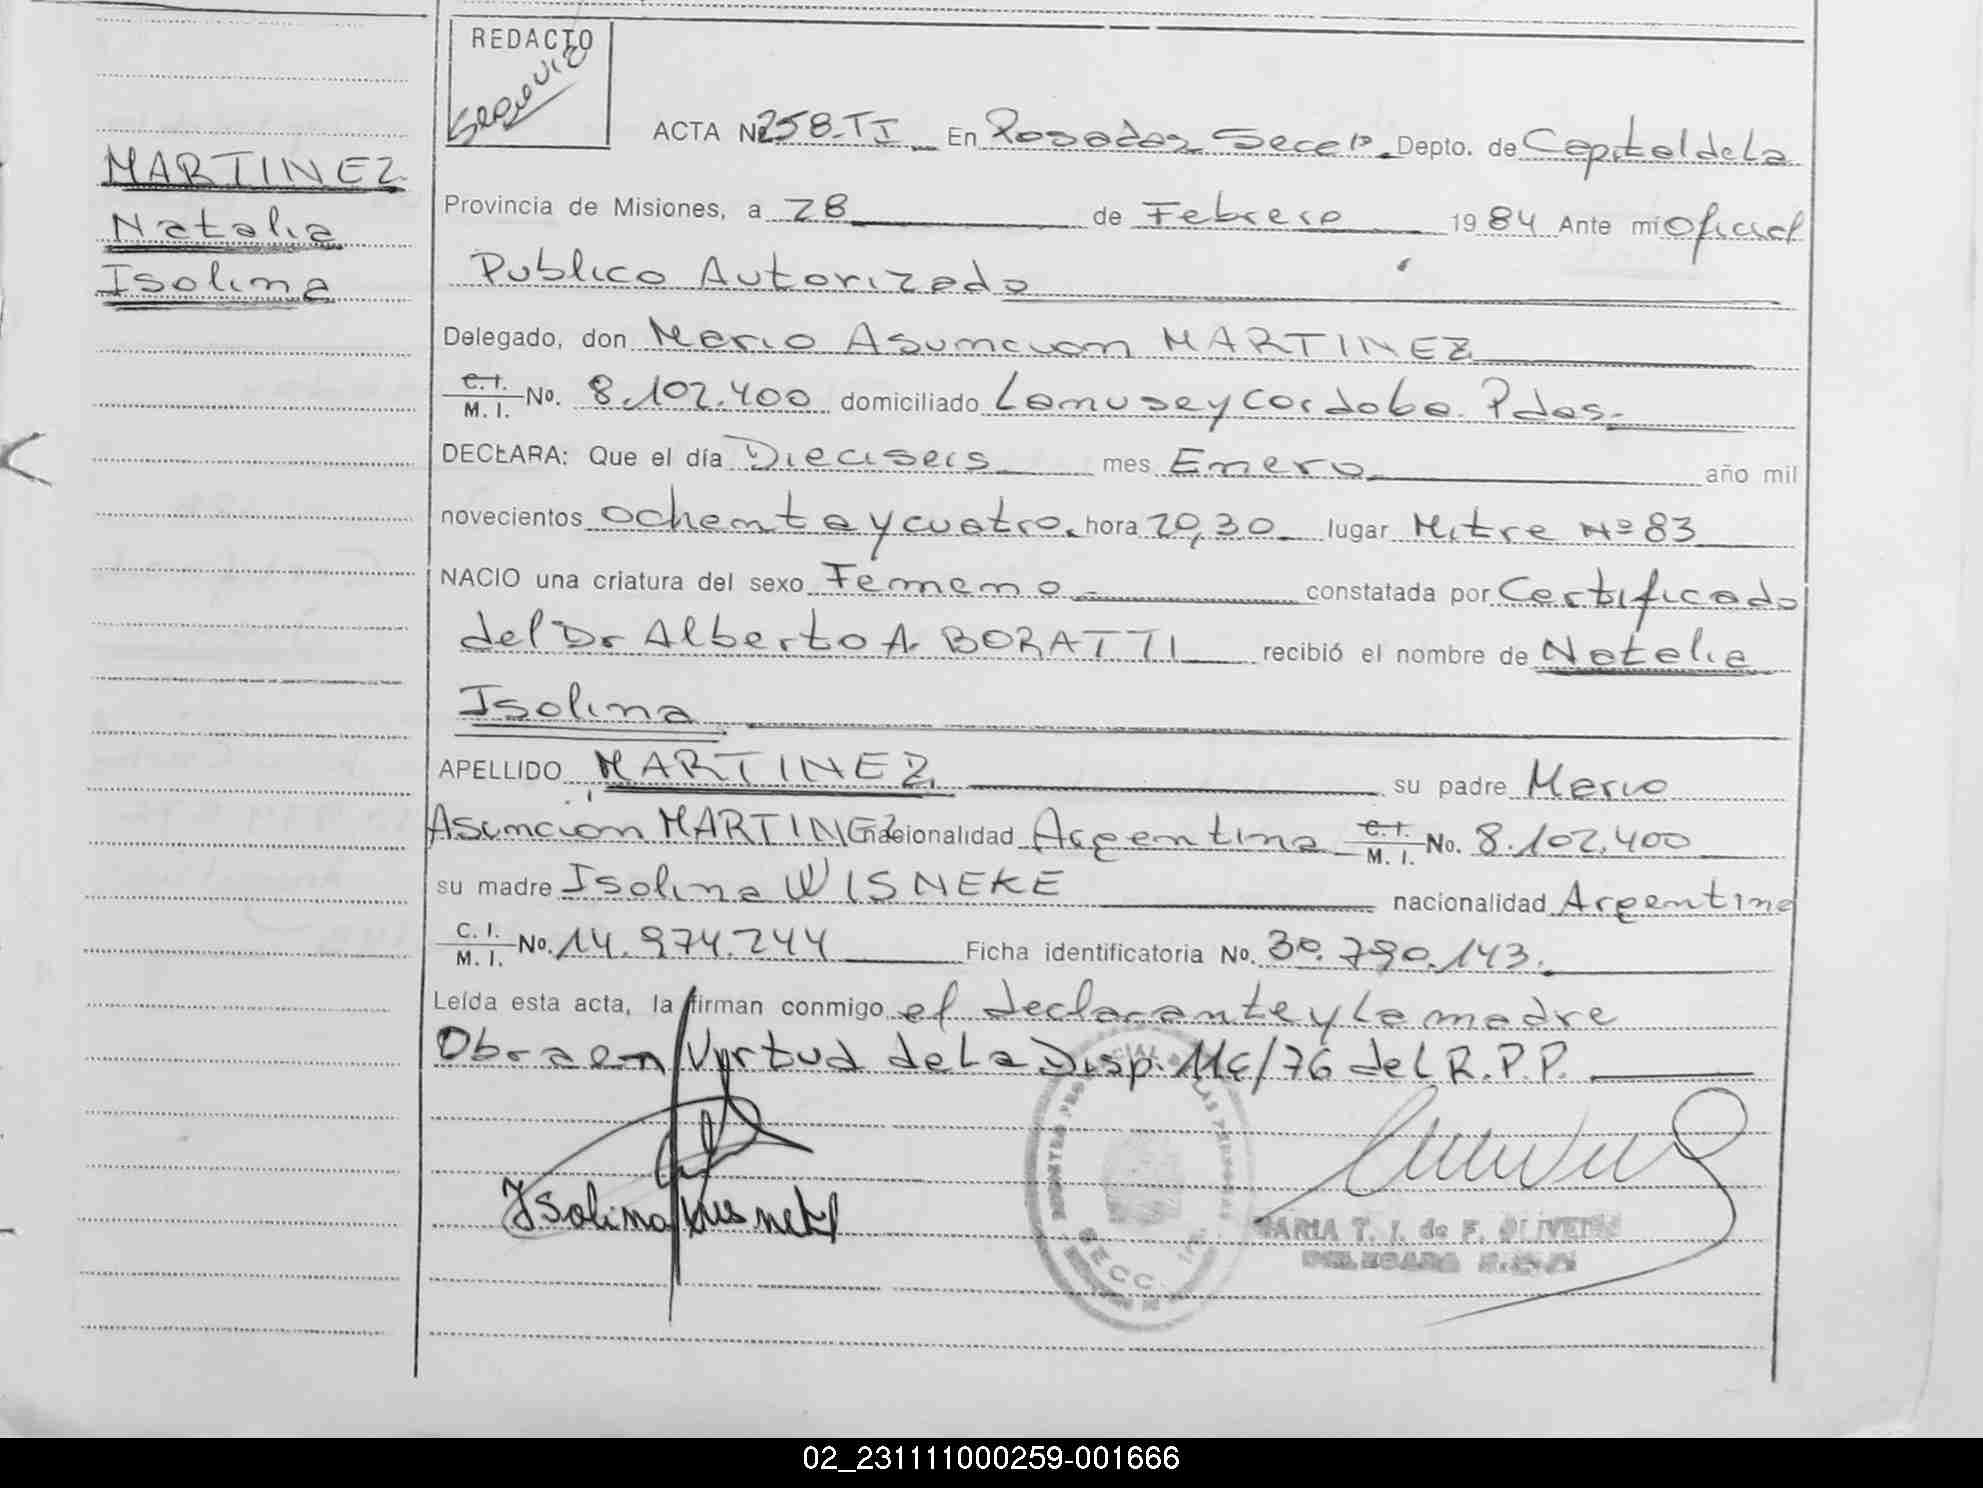 REDACTO
ACTA Nº 258.TI En Posadas Secc 1ª Depto. de Capital de La
MARTINEZ
Natalia
Isolina
Provincia de Misiones, a 28 de Febrero 1984 Ante mi Oficial
Publico Autorizado
Delegado, don Mario Asuncion MARTINEZ
C.I. / M.I. No. 8.102.400 domiciliado Lamuse y Cordoba. Pdas.
DECLARA: Que el día Dieciseis mes Enero año mil
novecientos ochenta y cuatro, hora 20,30 lugar Mitre Nº 83
NACIO una criatura del sexo Femenino constatada por Certificado
del Dr Alberto A. BORATTI recibió el nombre de Natalia
Isolina
APELLIDO MARTINEZ su padre Mario
Asuncion MARTINEZ nacionalidad Argentina C.I. / M.I. No. 8.102.400
su madre Isolina WISNEKE nacionalidad Argentina
C.I. / M.I. No. 14.974.244 Ficha identificatoria No. 30.790.143.
Leída esta acta, la firman conmigo el declarante y La madre
Obra en Virtud de La Disp. /76 del R.P.P.
Isolina
MARIA T. I. de F. OLIVEIRA
DELEGADA
SECC.
02_231111000259-001666